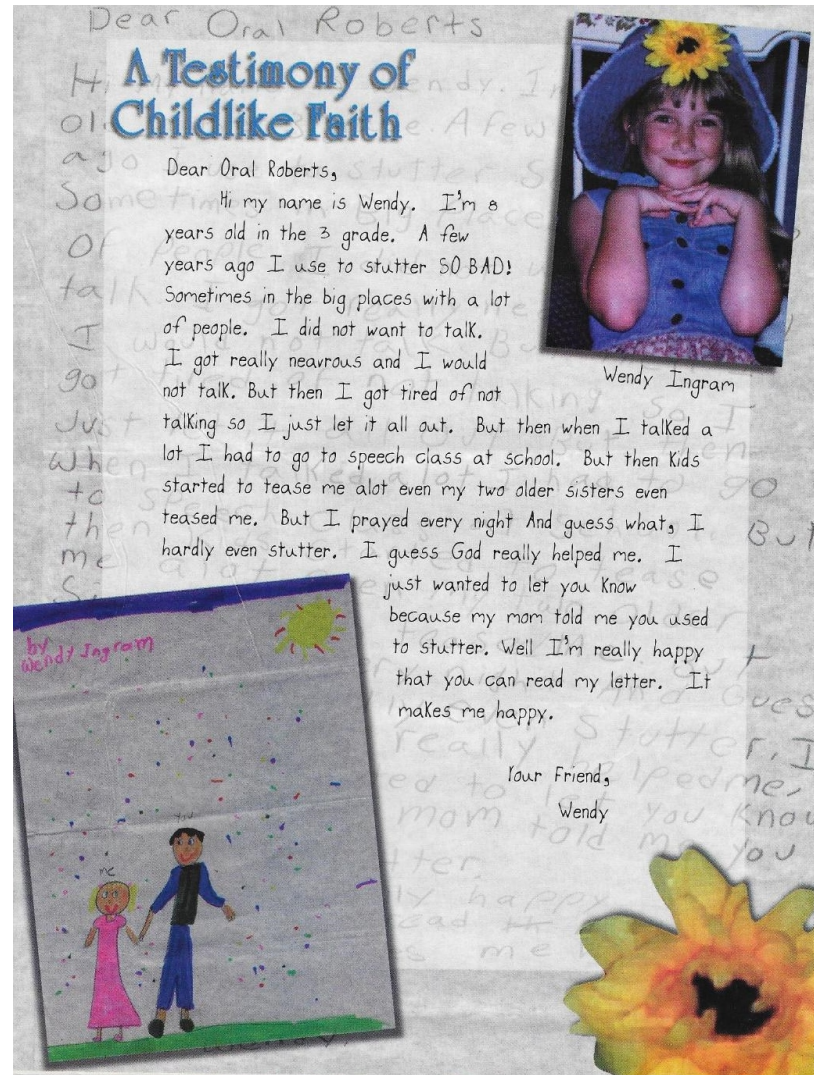 Dear Oral Roberts
A Testimony of
Childlike Faith
Dear Oral Roberts,
Hi my name is Wendy. I'm 8
years old in the 3 grade. A few
years ago I use to stutter SO BAD!
Sometimes in the big places with a lot
of people. I did not want to talk.
I got really neavrous and I would
not talk. But then I got tired of not
talking so I just let it all out. But then when I talked a
lot I had to go to speech class at school. But then Kids
started to tease me alot even my two older sisters even
teased me. But I prayed every night And guess what, I
hardly even stutter. I guess God really helped me. I
just wanted to let you Know
because my mom told me you used
to stutter. Well I'm really happy
that you can read my letter. It
makes me happy.
Your Friend,
Wendy
Wendy Ingram
by
Wendy Ingram
you
me